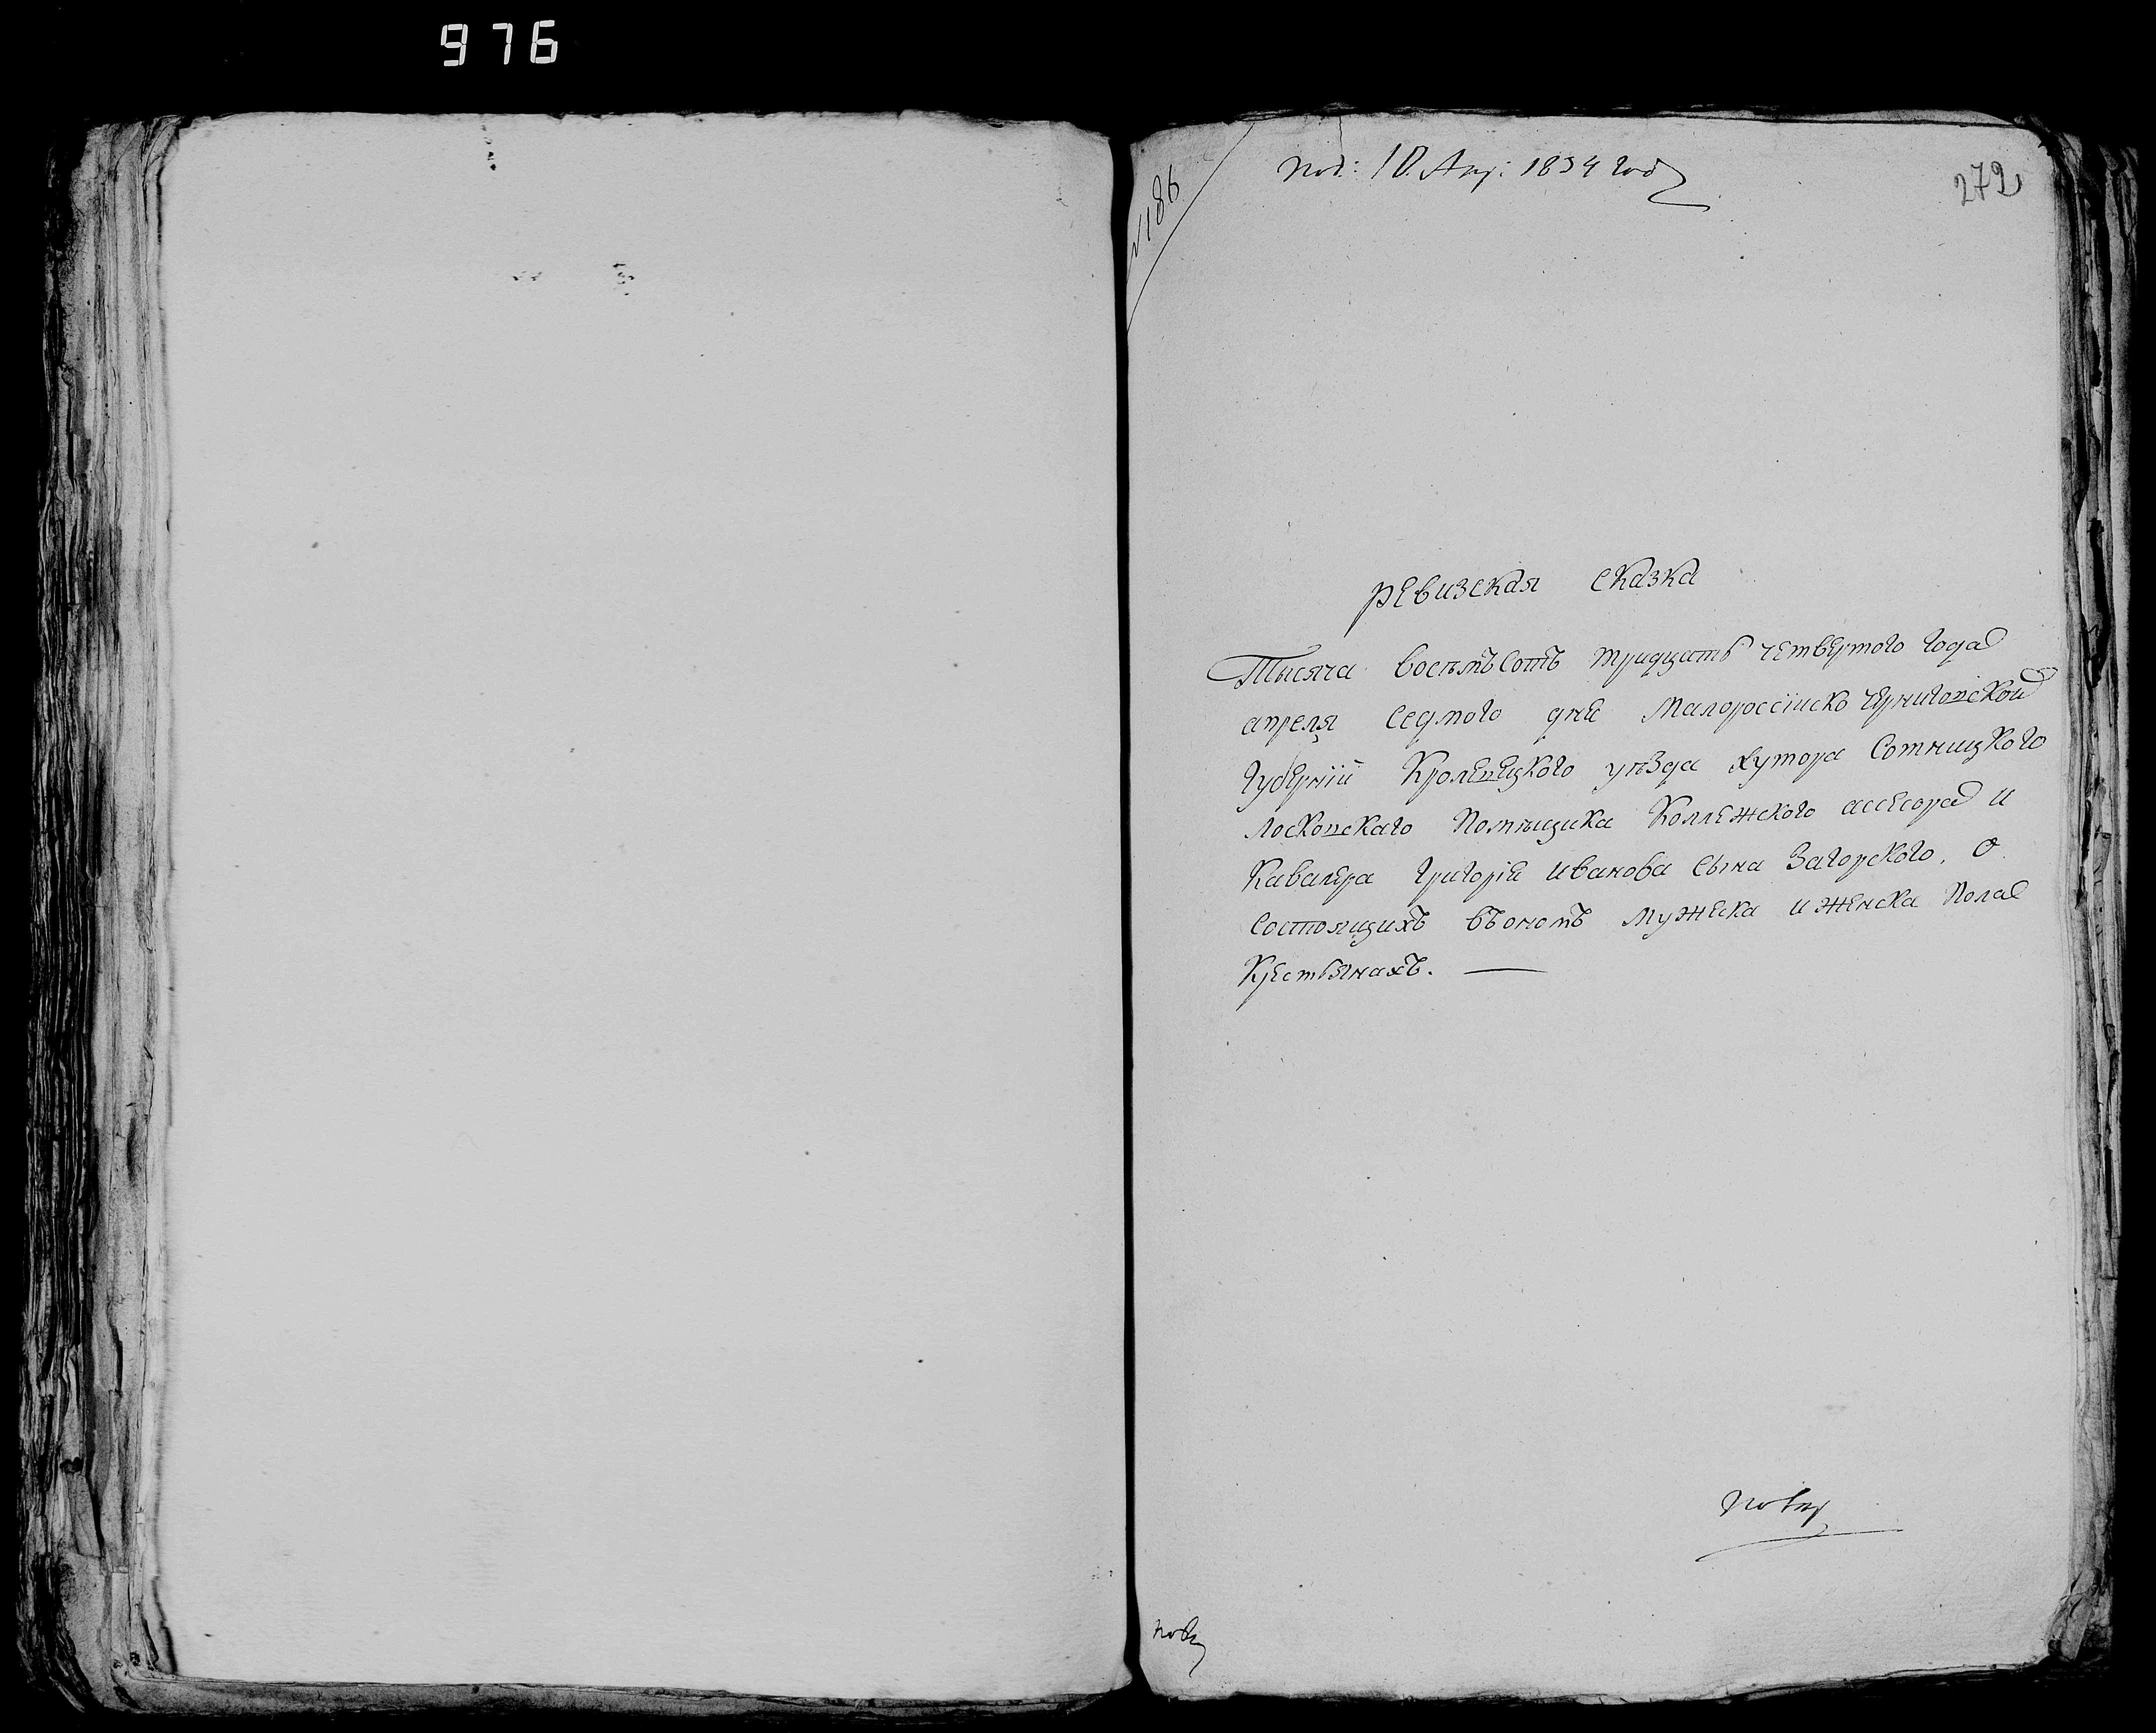 976
№ 186
Под: 10. Апр: 1834 года
272
Ревизская сказка
Тысяча восемъсотъ тридцать четвертого года
апреля седмого дня Малороссійско Черниговской
Губерніи Кролевецкого уѣзда хутора Сотницкого
Лосковскаго Помѣщика Коллежского ассесора и
Кавалера Григорія Иванова сына Загорского, о
состоящихъ въ ономъ мужеска и женска пола
Крестьянахъ. —